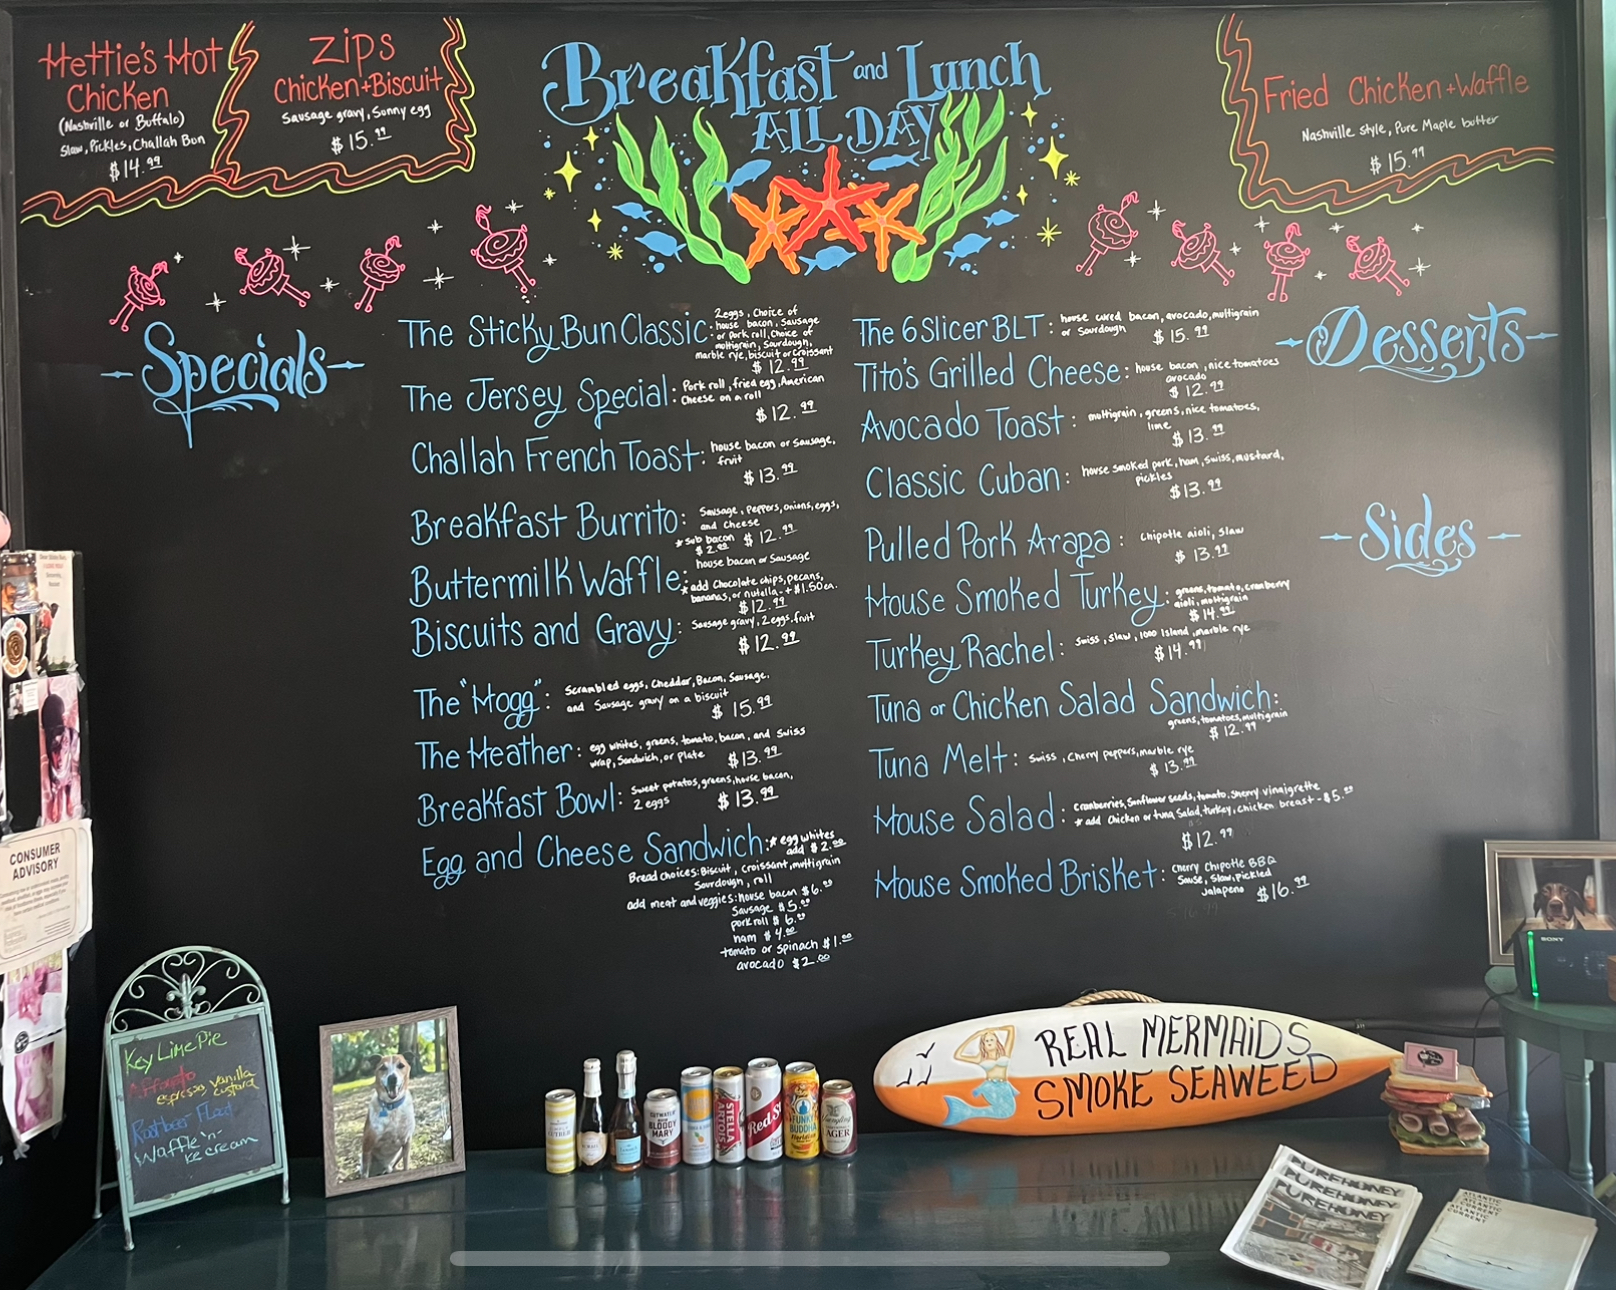 Hettie's Hot
Chicken
(Nashville or Buffalo)
Slaw, Pickles, Challah Bun
$14.99
Zips
Chicken + Biscuit
Sausage gravy, Sunny egg
$15.99
Breakfast and Lunch
ALL DAY
Fried Chicken + Waffle
Nashville style, Pure Maple butter
$15.99
Specials
The Sticky Bun Classic: 2 eggs, Choice of
house bacon, Sausage
or Pork roll, Choice of
multigrain, Sourdough,
marble rye, biscuit or Croissant
$12.99
The Jersey Special: Pork roll, fried egg, American
Cheese on a roll
$12.99
Challah French Toast: house bacon or sausage,
fruit
$13.99
Breakfast Burrito: Sausage, Peppers, onions, eggs,
and Cheese
*sub bacon $12.99
$2.00
Buttermilk Waffle: house bacon or Sausage
*add Chocolate chips, pecans,
bananas, or nutella - + $1.50 ea.
$12.99
Biscuits and Gravy: Sausage gravy, 2 eggs, fruit
$12.99
The "Mogg": Scrambled eggs, Cheddar, Bacon, Sausage,
and Sausage gravy on a biscuit
$15.99
The Heather: egg whites, greens, tomato, bacon, and Swiss
wrap, Sandwich, or Plate $13.99
Breakfast Bowl: Sweet potatos, greens, house bacon,
2 eggs $13.99
Egg and Cheese Sandwich: *egg whites
add $2.00
Bread choices: Biscuit, croissant, multigrain
Sourdough, roll
add meat and veggies: House bacon $6.00
Sausage $5.00
pork roll $6.00
ham $4.00
tomato or spinach $1.00
avocado $2.00
The 6 Slicer BLT: house cured bacon, avocado, multigrain
or Sourdough $15.99
Tito's Grilled Cheese: house bacon, nice tomatoes
avocado
$12.99
Avocado Toast: multigrain, greens, nice tomatoes,
lime
$13.99
Classic Cuban: house smoked pork, ham, Swiss, mustard,
pickles
$13.99
Pulled Pork Arapa: Chipotle aioli, Slaw
$13.99
House Smoked Turkey: greens, tomato, cranberry
aioli, multigrain
$14.99
Turkey Rachel: Swiss, Slaw, 1000 Island, marble rye
$14.99
Tuna or Chicken Salad Sandwich:
greens, tomatoes, multigrain
$12.99
Tuna Melt: Swiss, Cherry peppers, marble rye
$13.99
House Salad: Cranberries, Sunflower seeds, tomato, Sherry vinaigrette
*add Chicken or tuna Salad, turkey, chicken breast - $5.00
$12.99
House Smoked Brisket: Cherry Chipotle BBQ
Sause, Slaw, pickled
Jalapeno $16.99
Desserts
Sides
CONSUMER
ADVISORY
Key Lime Pie
Affogato
espresso, vanilla
custard
Rootbeer Float
Waffle 'n'
ice cream
BLOODY
MARY
STELLA
ARTOIS
Red St
FUNKY
BUDDHA
Floridian
Yuengling
LAGER
REAL MERMAIDS
SMOKE SEAWEED
SONY
PUREHONEY
PUREHONEY
PUREHONEY
PUREHONEY